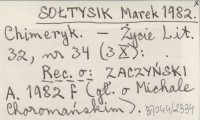 SOŁTYSIK Marek 1982.
Chimeryk. – Życie Lit.
32, nr 34 (3 X):
Rec. o: ZACZYŃSKI
A. 1982 f (gł. o Michale
Choromańskim).
B1044/2334